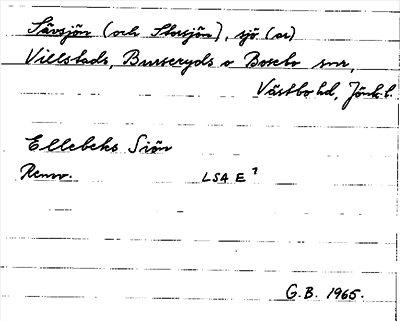 Sävsjön (och Storsjön), sjö (ar)
Villstads, Burseryds o Bosebo snr,
Västbo hd, Jönk.l.
Ellebeks Siön
Renov. LSA E 7
G.B. 1965.